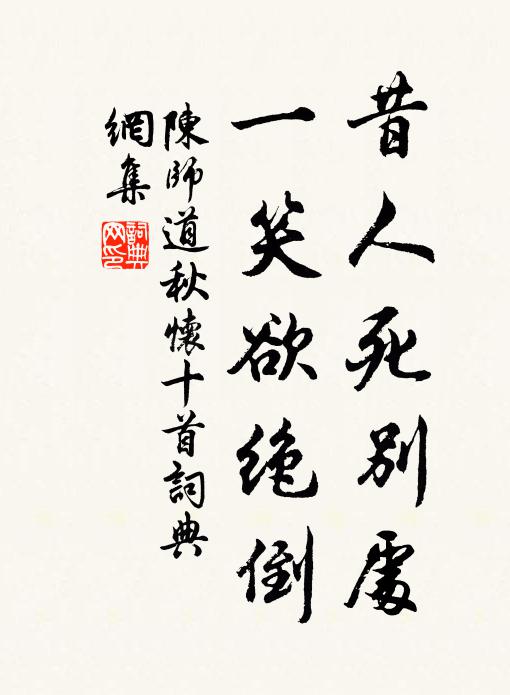 昔人死别處
一笑欲绝倒
陳師道秋懷十首詞典
網集
詞典
网印